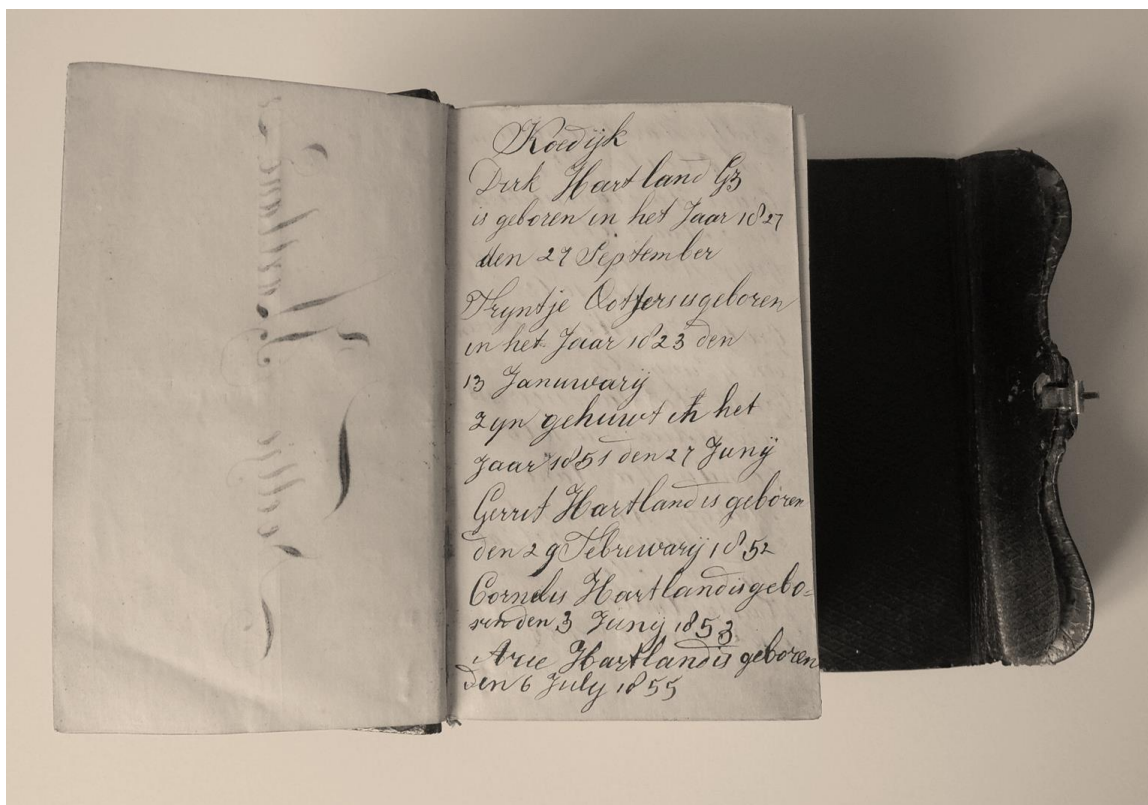 Koedijk
Dirk Hartland Gz
is geboren in het Jaar 1827
den 27 September
Tryntje is geboren
in het Jaar 1823 den
13 Januwarij
zyn gehuwt in het
Jaar 1851 den 27 Junij
Gerrit Hartland is geboren
den 29 Febrewarij 1852
Cornelis Hartland is gebo=
ren den 3 Juny 1853
Arie Hartland is geboren
den 6 July 1855